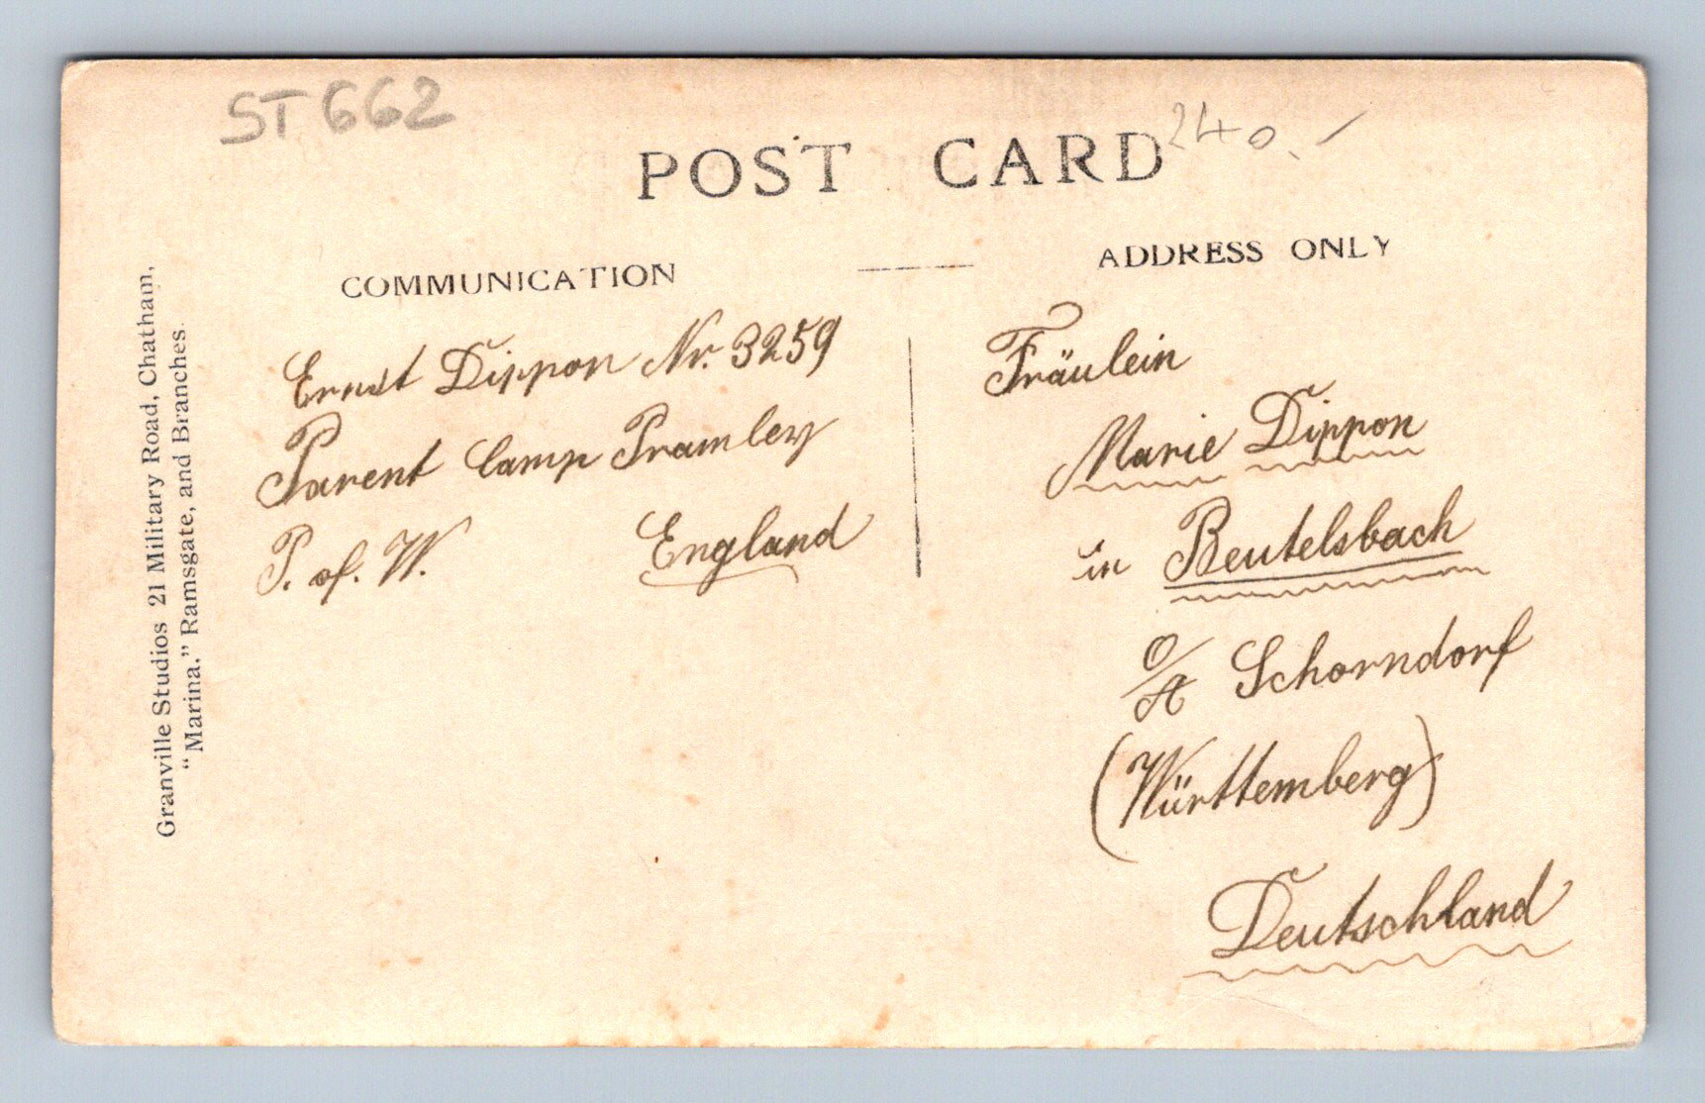 ST 662
240.-
POST CARD
COMMUNICATION
ADDRESS ONLY
Granville Studios 21 Military Road, Chatham,
"Marina." Ramsgate, and Branches.
Ernst Dippon Nr. 3259
Parent Camp Pramley
P. of. W. England
Fräulein
Marie Dippon
in Beutelsbach
O/A Schorndorf
(Württemberg)
Deutschland